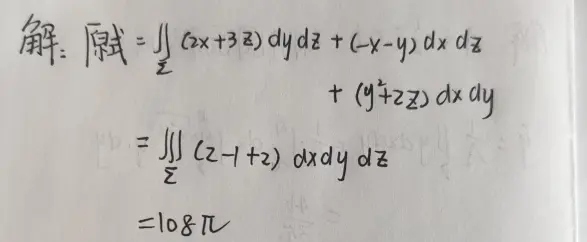 解：原式 = ∬_Σ (2x+3z) dy dz + (-x-y) dx dz
+ (y²+2z) dx dy
= ∭_Σ (2-1+2) dx dy dz
=108π